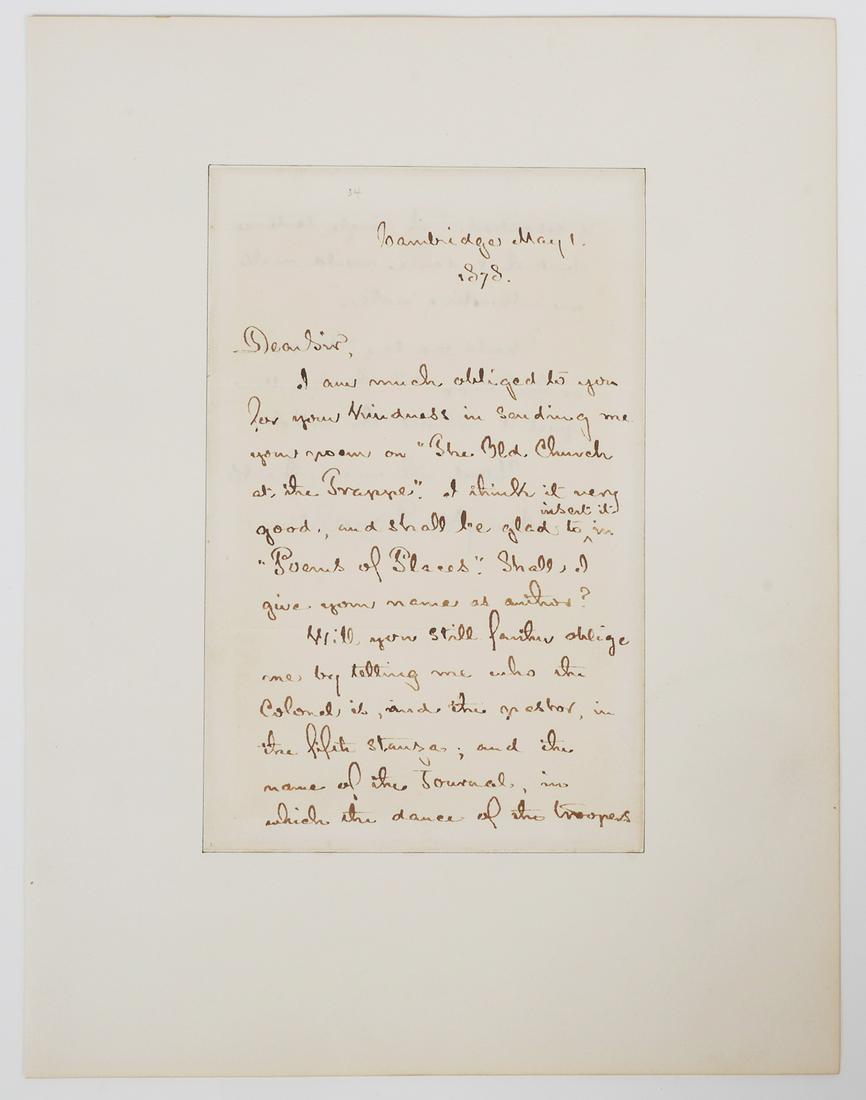 34
Cambridge May 1.
1878.
Dear Sir,
I am much obliged to you
for your kindness in sending me
your poem on "The Old Church
at the Trappe". I think it very
good, and shall be glad to insert it in
"Poems of Places". Shall I
give your name as author?
Will you still farther oblige
me by telling me who the
Colonel is, and the pastor, in
the fifth stanza; and the
name of the Journal, in
which the dance of the troopers